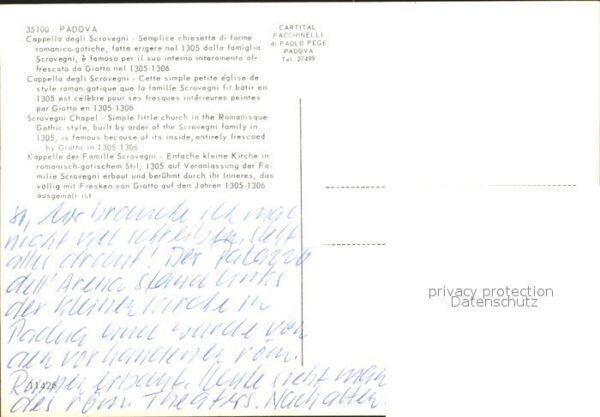 35100 - PADOVA
Cappella degli Scrovegni - Semplice chiesetta di forme
romanico-gotiche, fatta erigere nel 1305 dalla famiglia
Scrovegni, è famosa per il suo interno interamente af-
frescato da Giotto nel 1305-1306
Cappella degli Scrovegni - Cette simple petite église de
style roman-gotique que la famille Scrovegni fit bâtir en
1305 est célèbre pour ses fresques intérieures peintes
par Giotto en 1305-1306
Scrovegni Chapel - Simple little church in the Romanisque-
Gothic style, built by order of the Scrovegni family in
1305, is famous because of its inside, entirely frescoed
by Giotto in 1305-1306
Kappelle der Famille Scrovegni - Enfache kleine Kirche in
romanisch-gotischem Stil; 1305 auf Veranlassung der Fa-
milie Scrovegni erbaut und berühmt durch ihr Inneres, das
völlig mit Fresken von Giotto auf den Jahren 1305-1306
ausgemalt ist
CARTITAL
FACCHINELLI
di PAOLO PEGE
PADOVA
Tel. 27499
brauche ich mal
nicht viel schreiben, steht
alles drauf! Der Palazzo
dell'Arena stand links
der kleinen Kirche in
Padua und wurde von
den vorhandenen röm.
Ruinen erbaut. Heute sieht man
des röm. Theaters. Nach alten
11426
privacy protection
Datenschutz